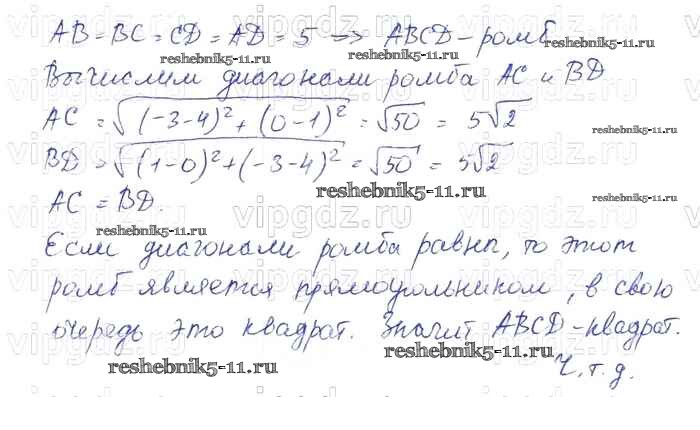 AB = BC = CD = AD = 5 => ABCD - ромб
reshebnik5-11.ru reshebnik5-11.ru
Вычислим диагонали ромба AC и BD
AC = √((-3-4)² + (0-1)²) = √50 = 5√2
BD = √((1-0)² + (-3-4)²) = √50 = 5√2
reshebnik5-11.ru reshebnik5-11.ru
AC = BD.
reshebnik5-11.ru
Если диагонали ромба равны, то этот
ромб является прямоугольником, в свою
очередь это квадрат. Значит ABCD - квадрат.
reshebnik5-11.ru reshebnik5-11.ru
Ч.т.д.
vipgdz.ru vipgdz.ru vipgdz.ru